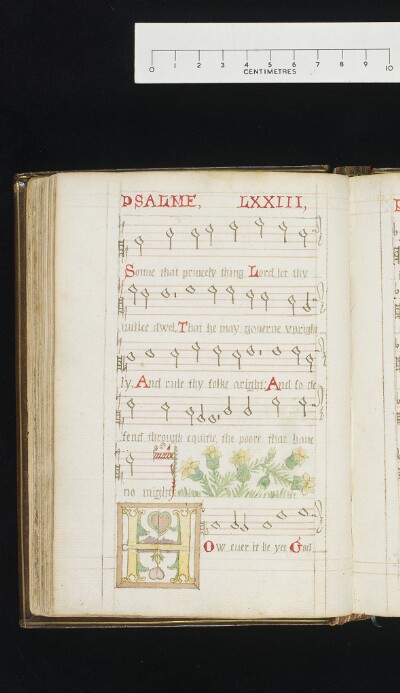 0 1 2 3 4 5 6 7 8 9 10
CENTIMETRES
PSALME, LXXIII,
Sonne that princely thing Lord let thy
iustice dwel, That he may gouerne vpright
ly, And rule thy folke aright: And so de
fend through equitie, the poore that haue
no might
How euer it be yet God